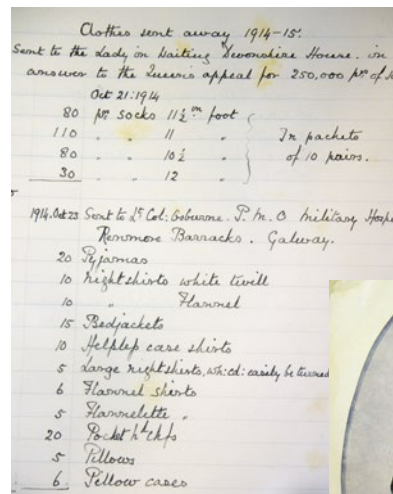 Clothes sent away 1914-15.
Sent to the Lady in Waiting Devonshire House. in
answer to the Queen's appeal for 250,000 prs of
Oct 21: 1914
80 prs socks 11½ in foot
110 " " 11 "
80 " " 10½ "
30 " " 12 "
In packets
of 10 pairs.
1914. Oct 23 Sent to Lt Col: Osburne. P.M.O Military
Renmore Barracks. Galway.
20 Pyjamas
10 nightshirts white twill
10 " Flannel
15 Bedjackets
10 Helpless case shirts
5 Large nightshirts, wh: cd: easily be turned
6 Flannel shirts
5 Flannelette "
20 Pocket hdchfs
5 Pillows
6 Pillow cases